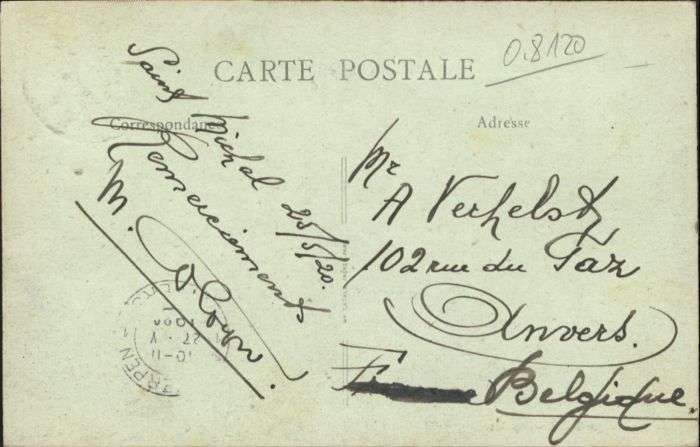 CARTE POSTALE
0.8120
Correspondance
Adresse
Saint Michel 25/5/20.
Remerciements
M.
Mr
A Verhelst
102 rue du Gaz
Anvers.
Belgique.
RPEN 1
10-11
27 · V